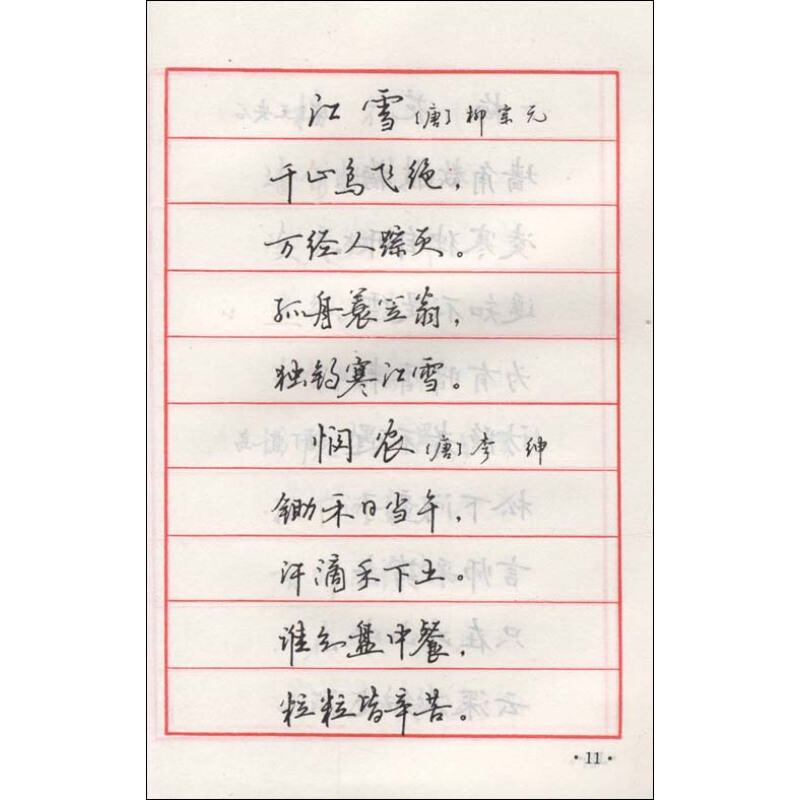 江雪〔唐〕柳宗元
千山鸟飞绝，
万径人踪灭。
孤舟蓑笠翁，
独钓寒江雪。
悯农〔唐〕李绅
锄禾日当午，
汗滴禾下土。
谁知盘中餐，
粒粒皆辛苦。
·11·